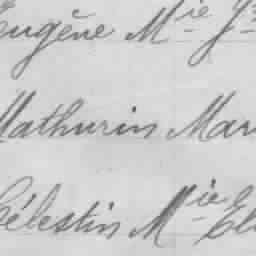 Eugène Mie J
Mathurin Mar
Célestin Mie El